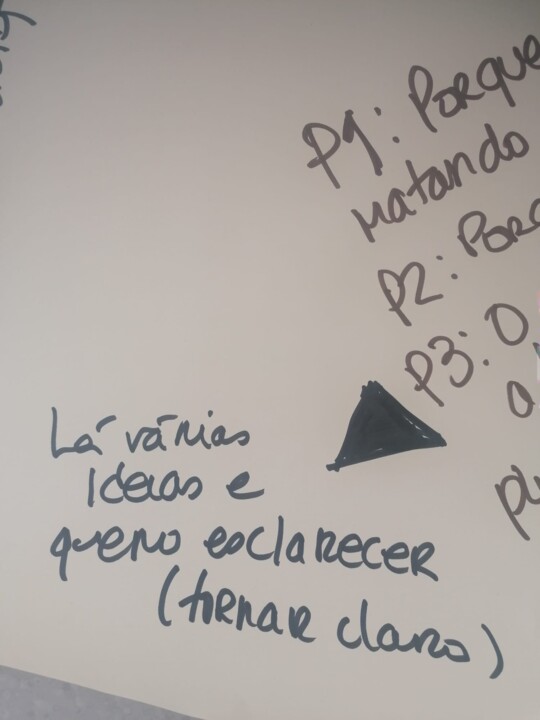 P1: Porque
matando
P2: Porq
P3: O
a
pl
Lá várias
Ideias e
quero esclarecer
(tornar claro)